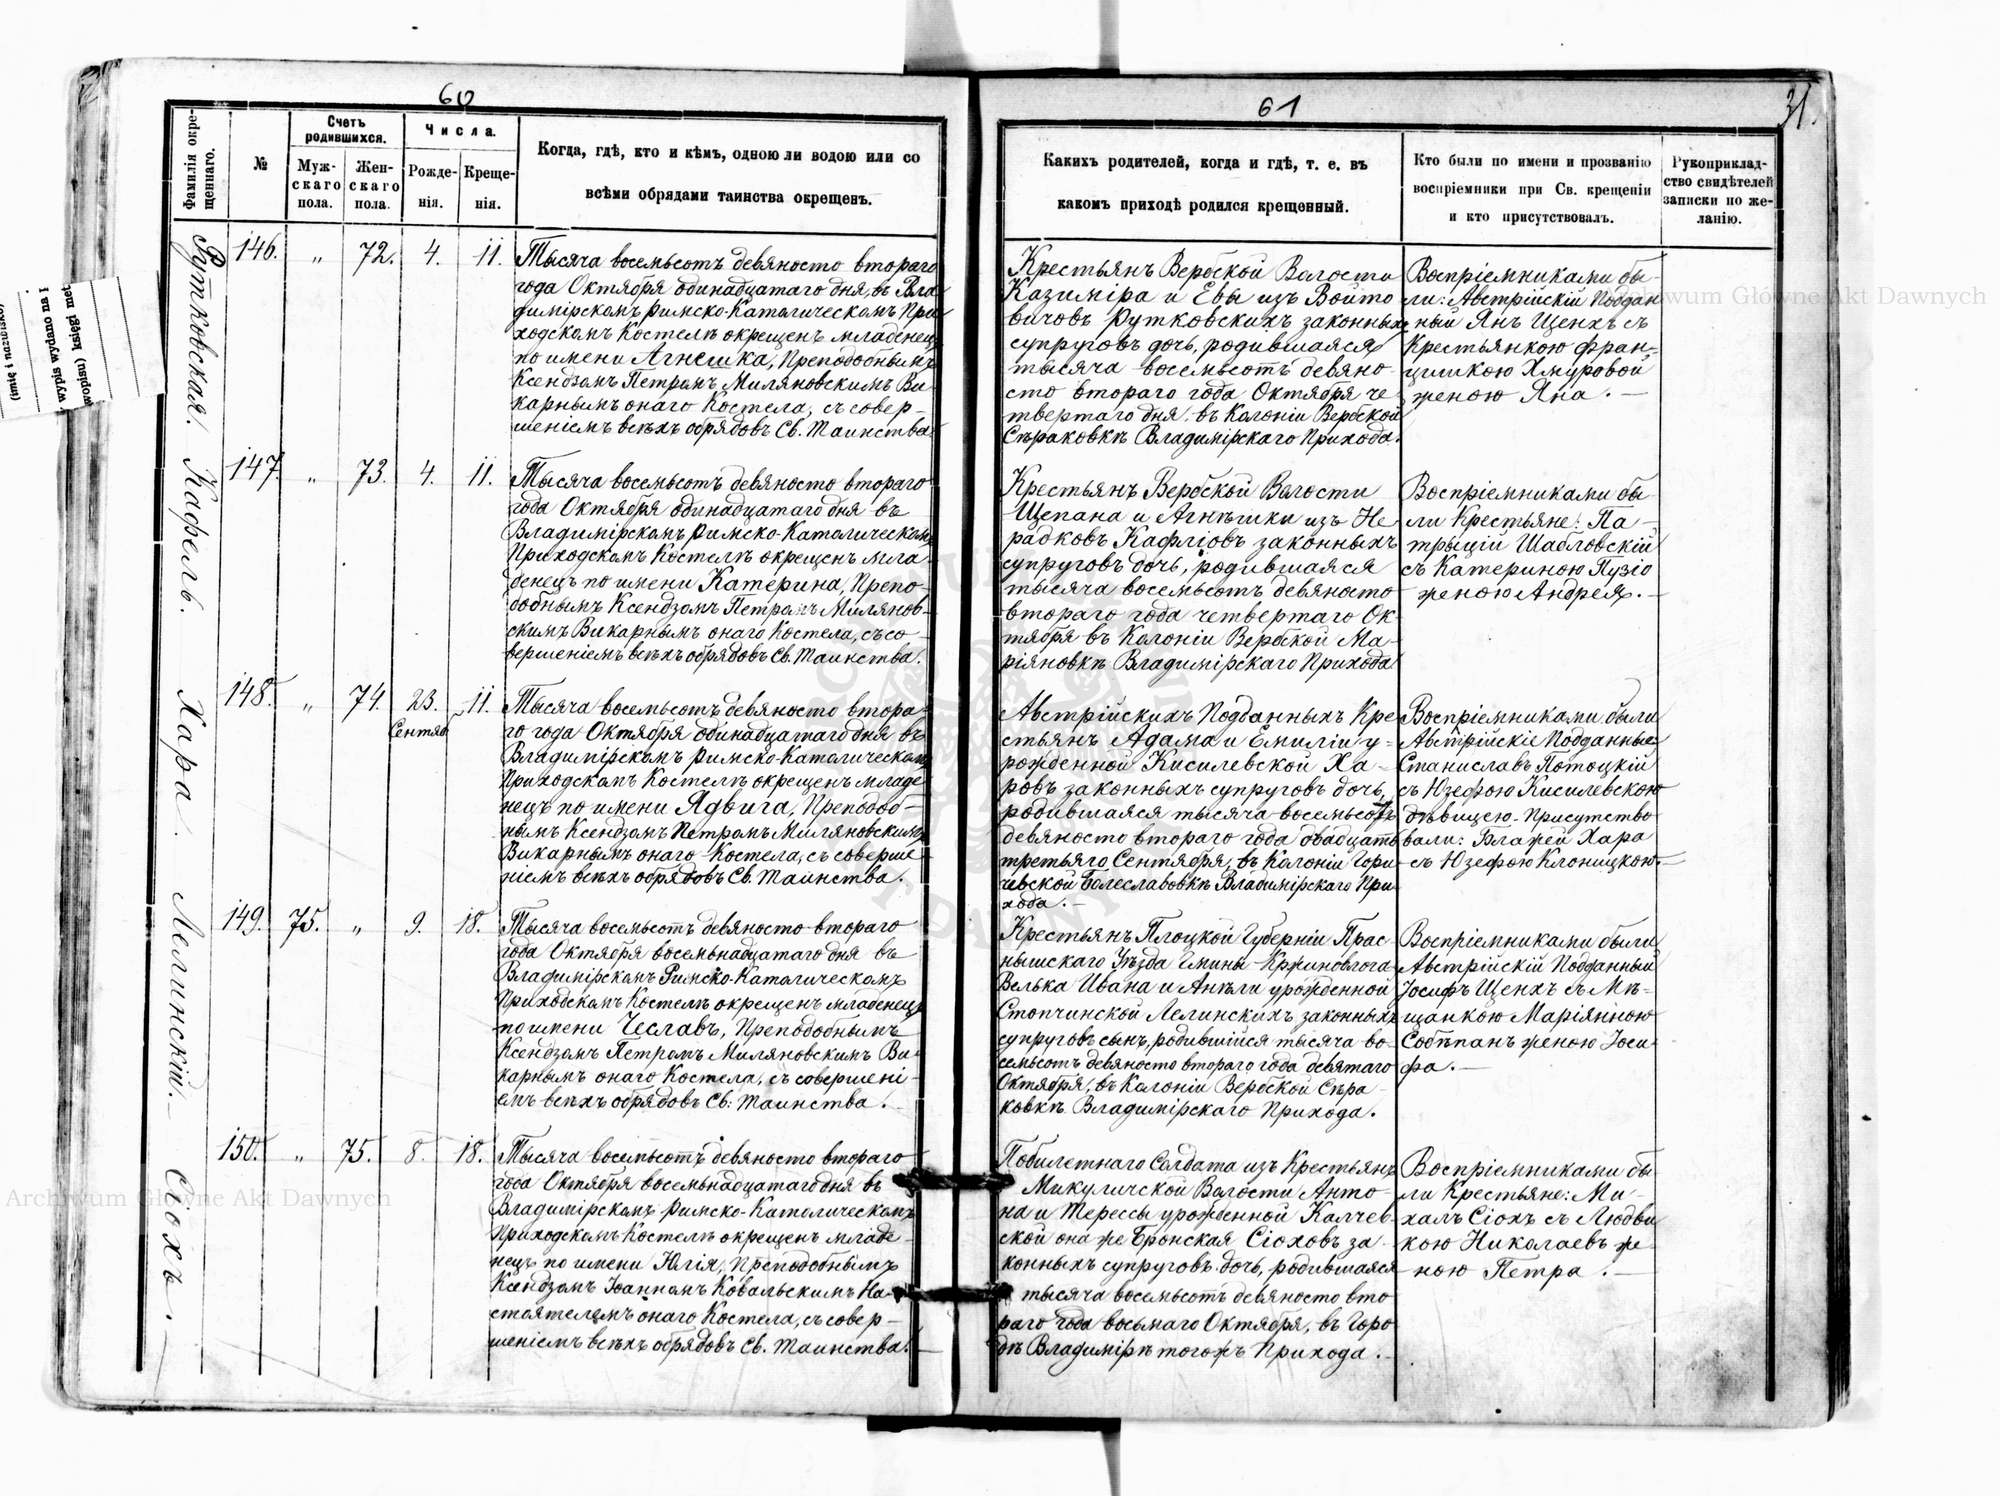 60
Фамилія окре-
щеннаго.
№
Счетъ
родившихся.
Муж-
скаго
пола.
Жен-
скаго
пола.
Числа.
Рожде-
нія.
Креще-
нія.
Когда, гдѣ, кто и кѣмъ, одною ли водою или со
всѣми обрядами таинства окрещенъ.
Рутковская.
146. „ 72. 4. 11.
Тысяча восемьсотъ девяносто втораго
года Октября одинадцатаго дня, въ Вла
димірскомъ Римско-Католическомъ При
ходскомъ Костелѣ окрещенъ младенецъ
по имени Агнешка, Преподобнымъ
Ксендзомъ Петромъ Миляновскимъ Ви-
карнымъ онаго Костела, съ совер-
шеніемъ всѣхъ обрядовъ Св. Таинства.
Кафель.
147. „ 73. 4. 11.
Тысяча восемьсотъ девяносто втораго
года Октября одинадцатаго дня въ
Владимірскомъ Римско-Католическомъ
Приходскомъ Костелѣ окрещенъ мла-
денецъ по имени Катерина, Препо-
добнымъ Ксендзомъ Петромъ Милянов-
скимъ Викарнымъ онаго Костела, съ со-
вершеніемъ всѣхъ обрядовъ Св. Таинства.
Хара.
148. „ 74. 23. 11.
Сентяб.
Тысяча восемьсотъ девяносто втора-
го года Октября одинадцатаго дня въ
Владимірскомъ Римско-Католическомъ
Приходскомъ Костелѣ окрещенъ младе-
нецъ по имени Ядвига, Преподоб-
нымъ Ксендзомъ Петромъ Миляновскимъ
Викарнымъ онаго Костела, съ соверше-
ніемъ всѣхъ обрядовъ Св. Таинства.
Лелинскій.
149. 75. „ 9. 18.
Тысяча восемьсотъ девяносто втораго
года Октября восемьнадцатаго дня въ
Владимірскомъ Римско-Католическомъ
Приходскомъ Костелѣ окрещенъ младенецъ
по имени Чеславъ, Преподобнымъ
Ксендзомъ Петромъ Миляновскимъ Ви-
карнымъ онаго Костела, съ совершені-
емъ всѣхъ обрядовъ Св. Таинства.
Сіохъ.
150. „ 75. 8. 18.
Тысяча восемьсотъ девяносто втораго
года Октября восемьнадцатаго дня въ
Владимірскомъ Римско-Католическомъ
Приходскомъ Костелѣ окрещенъ младе-
нецъ по имени Юлія, Преподобнымъ
Ксендзомъ Іоанномъ Ковальскимъ На-
стоятелемъ онаго Костела, съ совер-
шеніемъ всѣхъ обрядовъ Св. Таинства.
61
31.
Какихъ родителей, когда и гдѣ, т. е. въ
какомъ приходѣ родился крещенный.
Кто были по имени и прозванію
воспріемники при Св. крещеніи
и кто присутствовалъ.
Рукоприклад-
ство свидѣтелей
записки по же-
ланію.
Крестьянъ Вербской Волости
Казиміра и Евы изъ Войто
вичовъ Рутковскихъ законныхъ
супруговъ дочь, родившаяся
тысяча восемьсотъ девяно-
сто втораго года Октября че
твертаго дня, въ Колоніи Вербской
Сѣраковкѣ Владимірскаго Прихода.
Воспріемниками бы-
ли: Австрійскій Поддан
ный Янъ Щенхъ съ
Крестьянкою Фран-
цишкою Хмуровой
женою Яна.
Крестьянъ Вербской Волости
Щепана и Агнѣшки изъ Не
радковъ Кафліовъ законныхъ
супруговъ дочь, родившаяся
тысяча восемьсотъ девяносто
втораго года четвертаго Ок-
тября въ Колоніи Вербской Ма-
ріяновкѣ Владимірскаго Прихода
Воспріемниками бы-
ли Крестьяне: Па-
трыцій Шабловскій
съ Катериною Пузіо
женою Андрея.
Австрійскихъ Подданныхъ Кре-
стьянъ Адама и Емиліи у-
рожденной Кисилевской Ха-
ровъ законныхъ супруговъ дочь,
родившаяся тысяча восемьсотъ
девяносто втораго года двадцать
третьяго Сентября, въ Колоніи Гори-
чевской Болеславовкѣ Владимірскаго При-
хода.
Воспріемниками были
Австрійскіе Подданные:
Станиславъ Потоцкій
съ Юзефою Кисилевскою
дѣвицею. Присутство
вали: Блажей Хара
съ Юзефою Клоницкою.
Крестьянъ Плоцкой Губерніи Прас-
нышскаго Уѣзда Гмины Кржиновлога
Велька Ивана и Анѣли урожденной
Стопчинской Лелинскихъ законныхъ
супруговъ сынъ, родившійся тысяча во-
семьсотъ девяносто втораго года девятаго
Октября, въ Колоніи Вербской Сѣра-
ковкѣ Владимірскаго Прихода.
Воспріемниками были
Австрійскій Подданный
Іосифъ Щенхъ съ Мѣ-
щанкою Маріянною
Собѣпанъ женою Іоси
фа.
Побилетнаго Солдата изъ Крестьянъ
Микуличской Волости Анто-
на и Терессы урожденной Калчев-
ской она же Бронская Сіоховъ за-
конныхъ супруговъ дочь, родившаяся
тысяча восемьсотъ девяносто вто
раго года восьмаго Октября, въ Горо
дѣ Владимірѣ тогожъ Прихода.
Воспріемниками бы
ли Крестьяне: Ми-
халъ Сіохъ съ Людви
кою Николаевъ же-
ною Петра.
(imię i nazwisko)
wypis wydano na
księgi
Archiwum Główne Akt Dawnych
Archiwum Główne Akt Dawnych